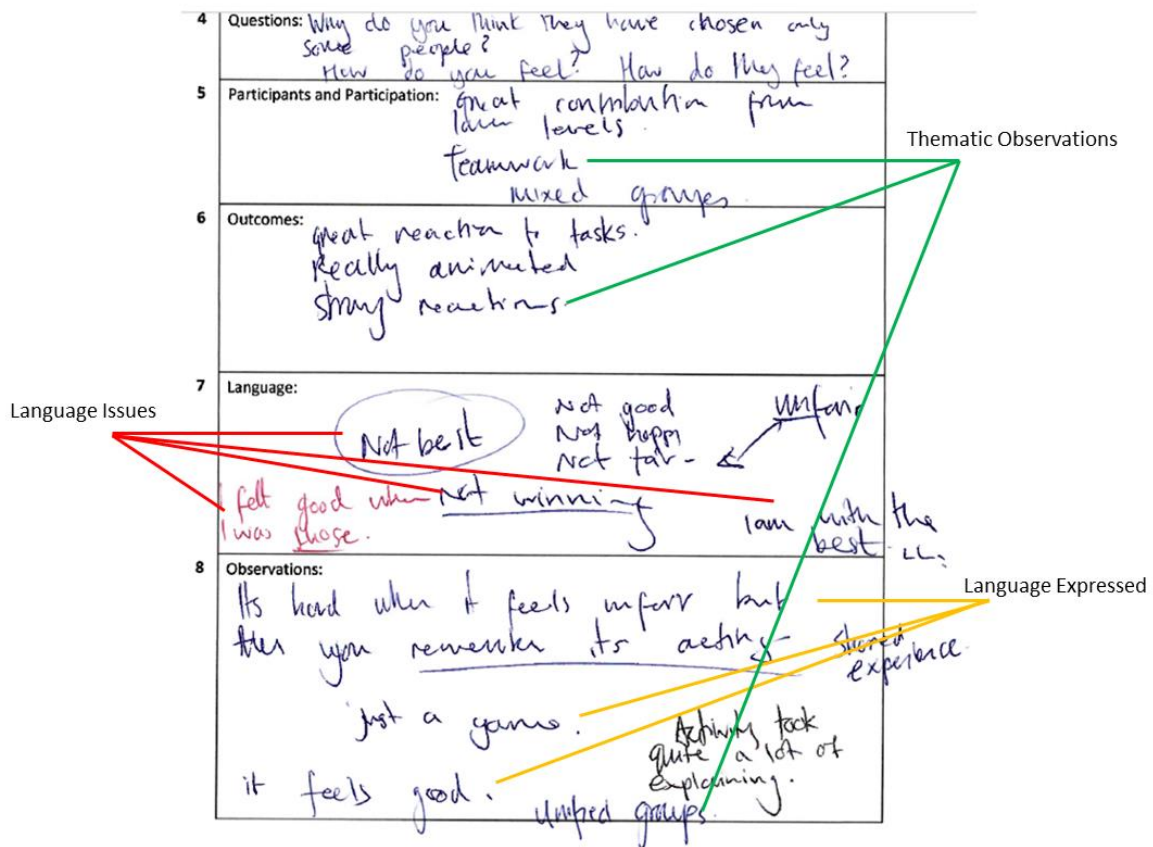 4 Questions: Why do you think they have chosen only
some people?
How do you feel? How do they feel?
5 Participants and Participation: great contribution from
lower levels.
Teamwork
Mixed groups.
Thematic Observations
6 Outcomes: great reaction to tasks.
Really animated
Strong reactions
7 Language:
Language Issues
Not best
Not good
Not happy
Not fair
unfair
I felt good when
I was chose.
Not winning
I am with the
best
8 Observations:
Its hard when it feels unfair but
then you remember its acting
shared
experience.
Language Expressed
just a game.
Activity took
quite a lot of
explaining.
it feels good.
groups.